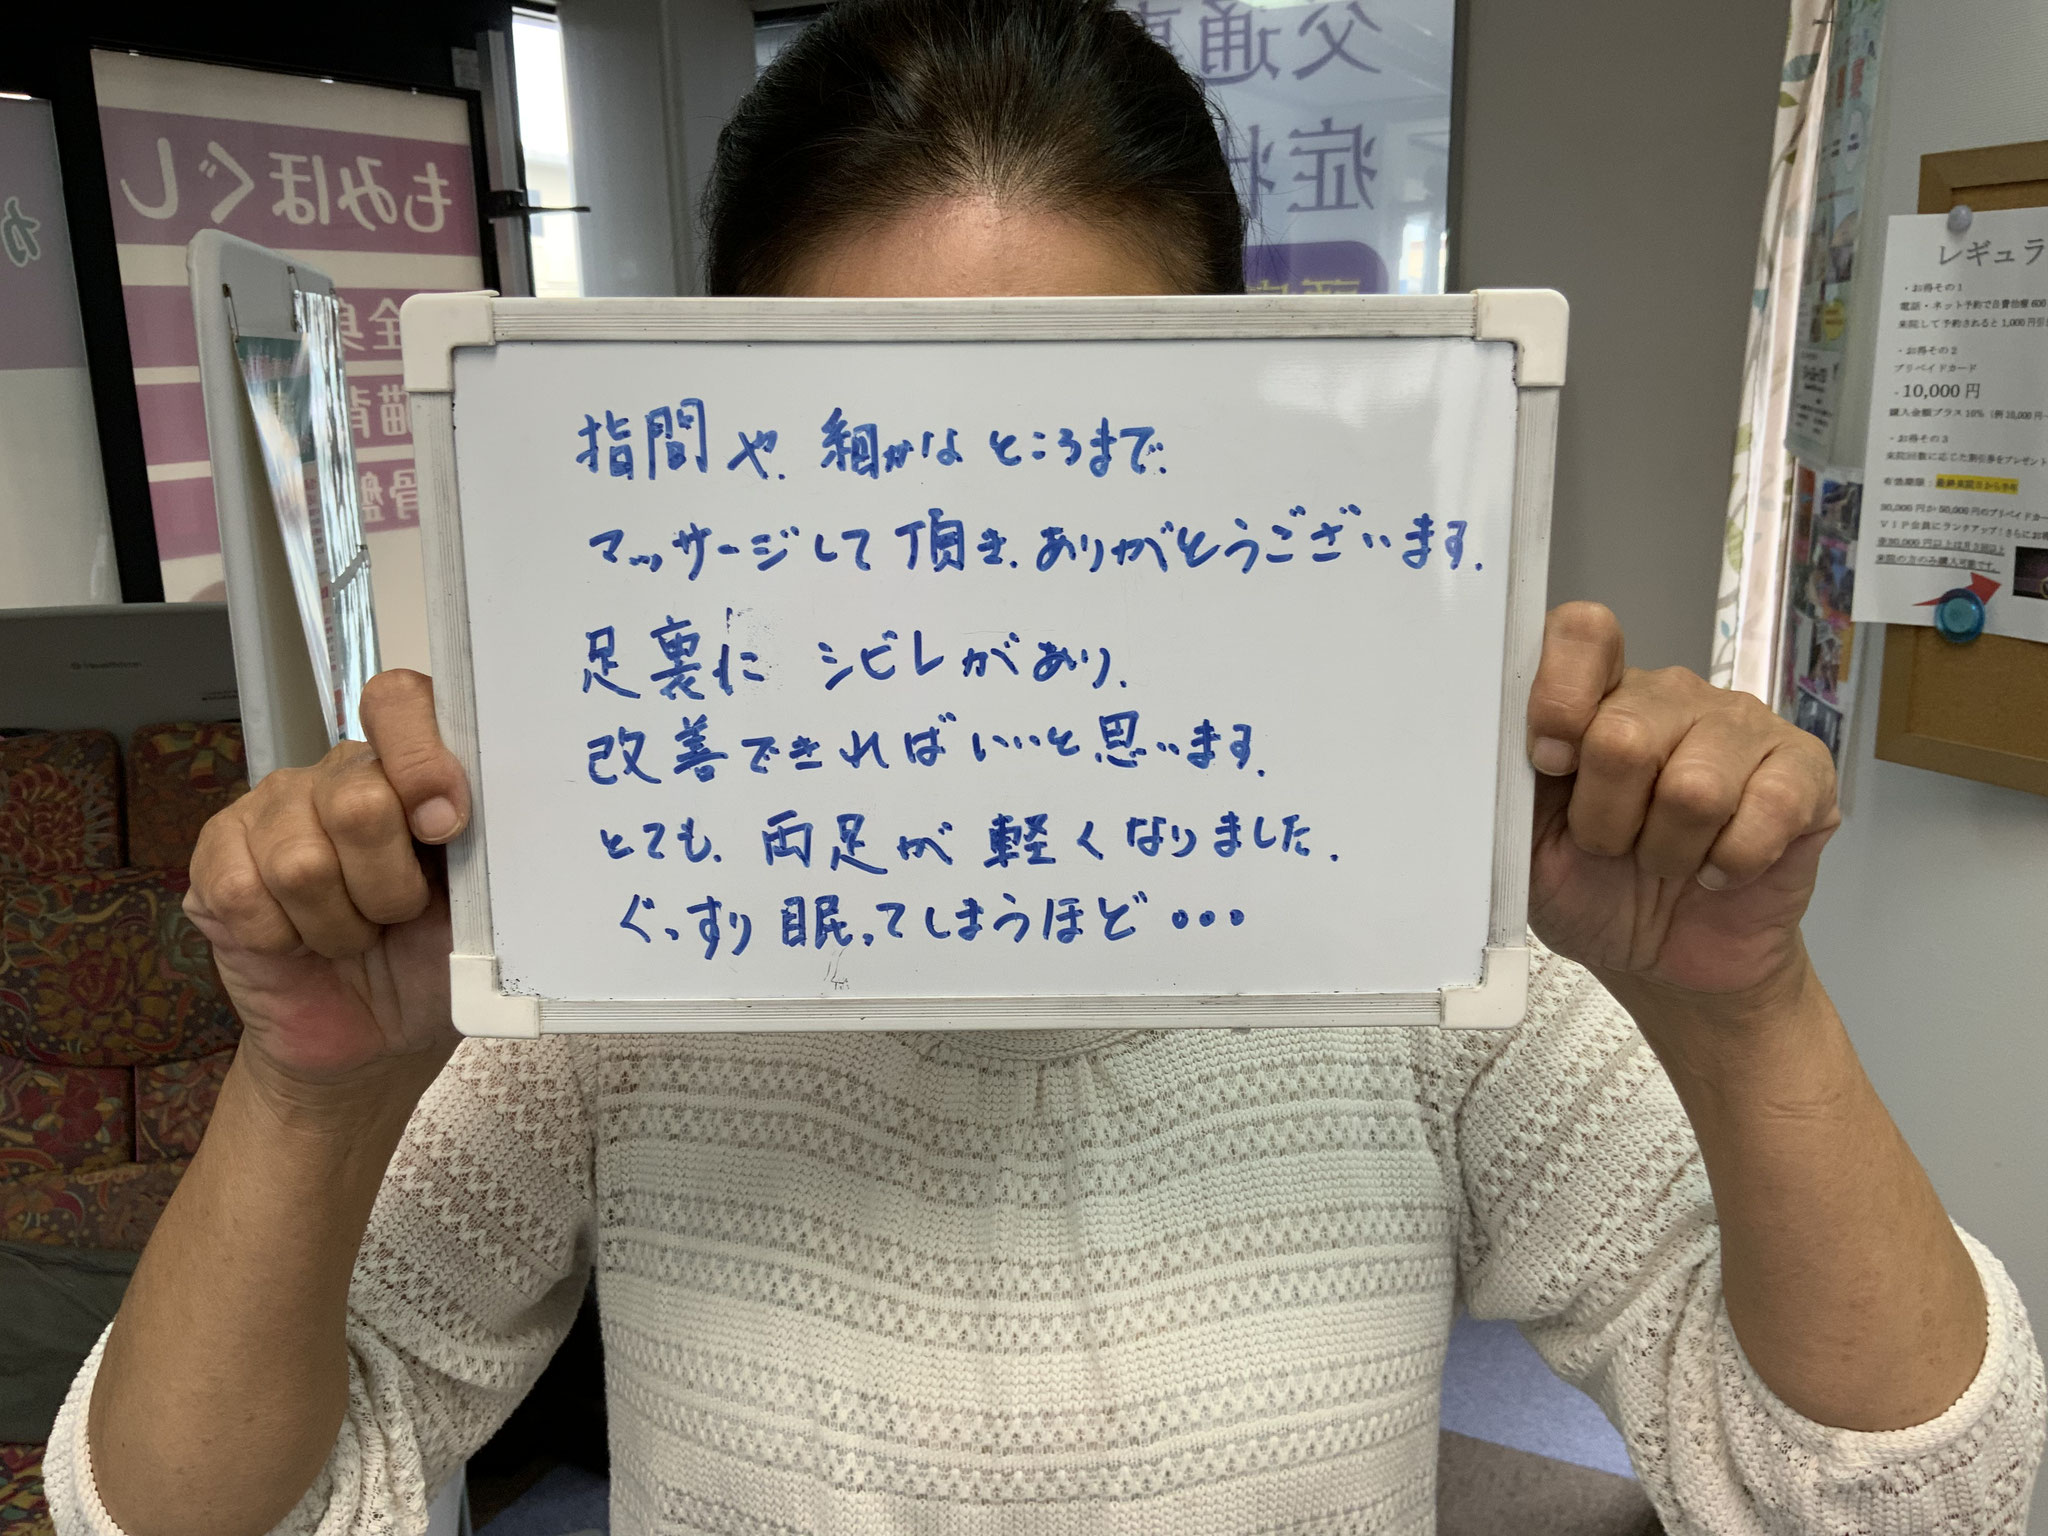 指間や、細かなところまで、
マッサージして頂き、ありがとうございます。
足裏に シビレがあり、
改善できればいいと思います。
とても、両足が軽くなりました。
ぐっすり眠ってしまうほど・・・
もみほぐし
全身
猫背
骨盤
カ
交通事
症状
レギュラ
・お得その1
電話・ネット予約で自費治療600
来院して予約されると1,000円引
・お得その2
プリペイドカード
・10,000円
購入金額プラス10%(例10,000円
・お得その3
来院回数に応じた割引券をプレゼント
有効期限:最終来院日から半年
VIP会員にランクアップ!さらにお得
来院の方のみ購入可能です。